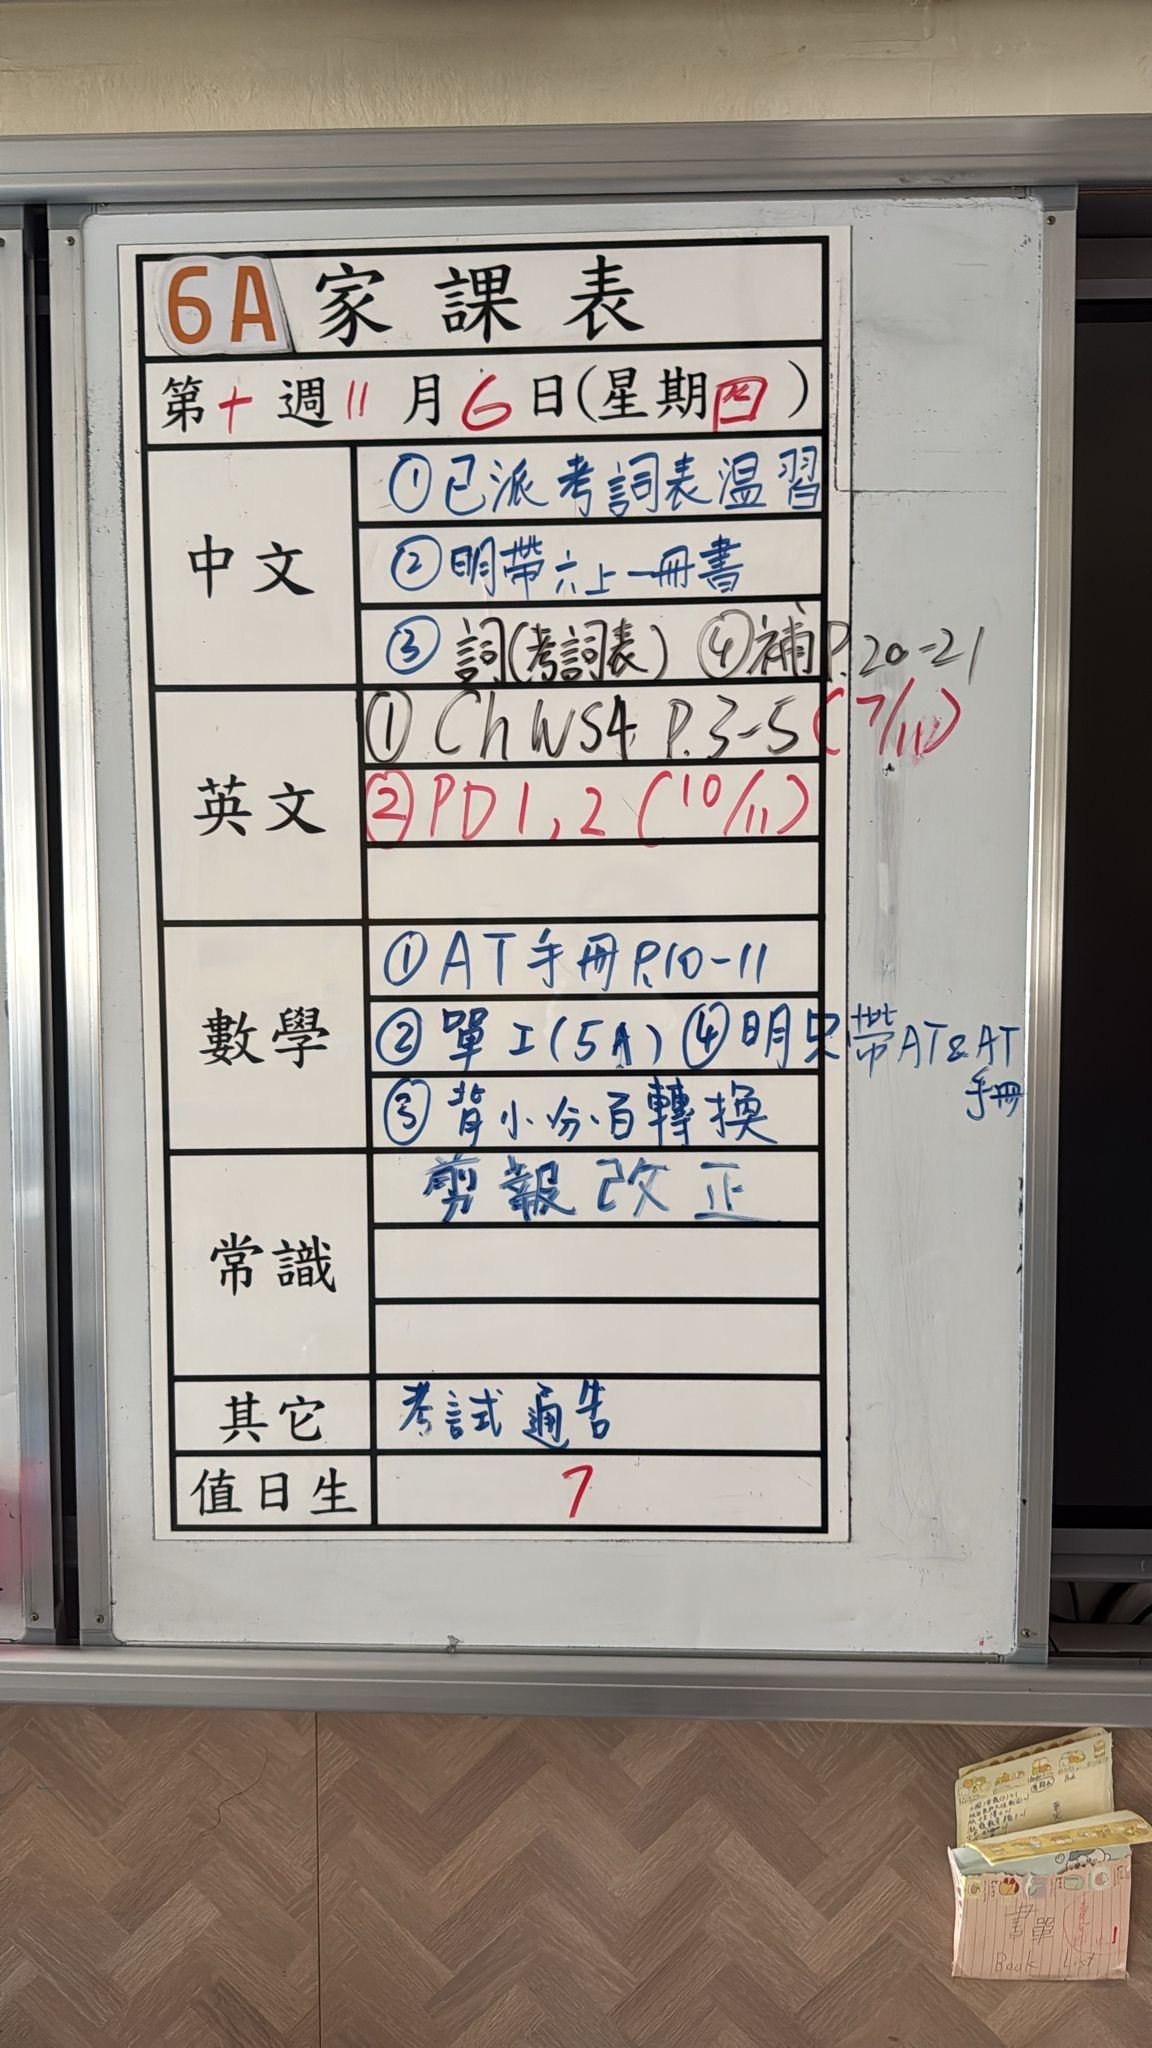 6A 家課表
第十週 11月6日(星期四)
中文
①已派考詞表温習
②明帶六上一冊書
③詞(考詞表) ④補P.20-21
英文
①Ch WS4 P.3-5 (7/11)
②PD1,2 (10/11)
數學
①AT手冊P.10-11
②單I(5A) ④明只帶AT&AT
手冊
③背小分百轉換
常識
剪報改正
其它
考試通告
值日生
7
書單
Book List